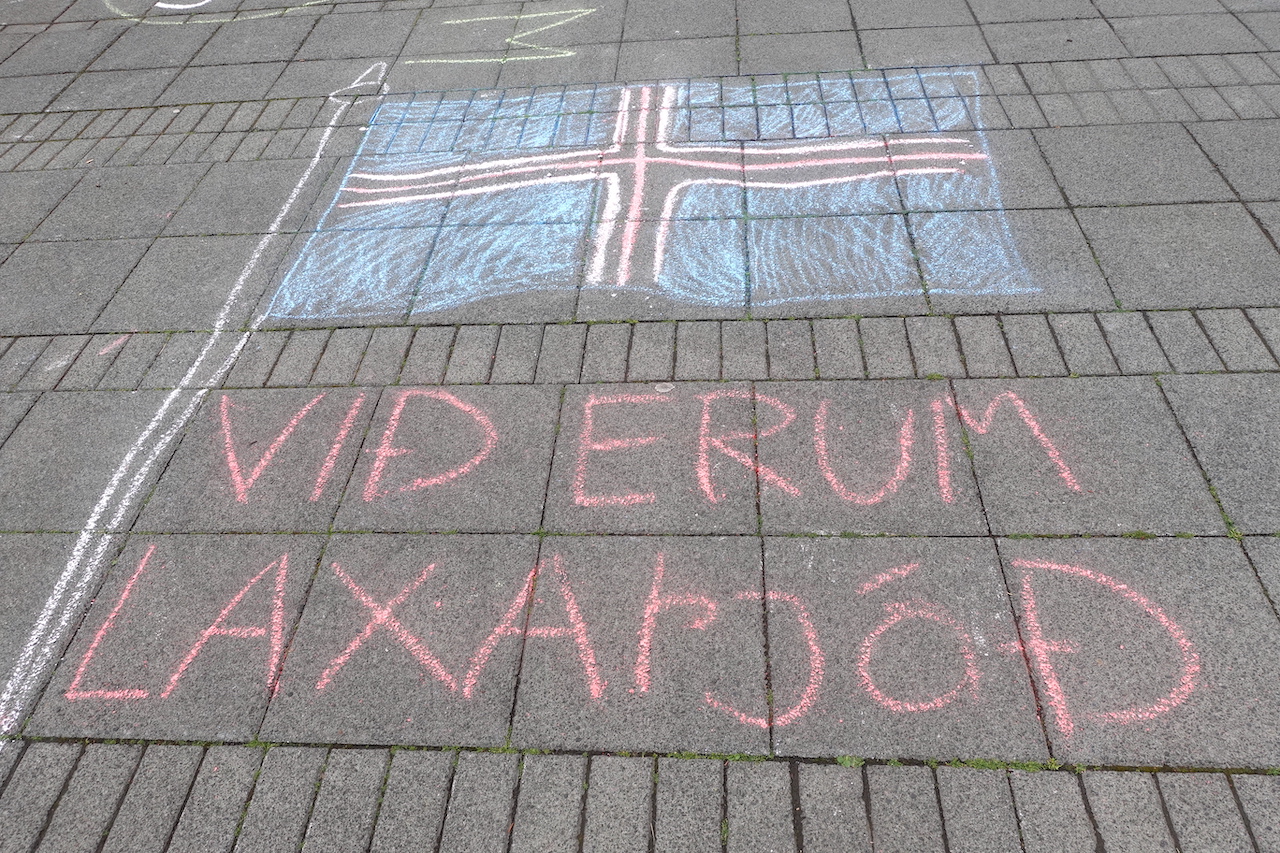 VIÐ ERUM
LAXAÞJÓÐ